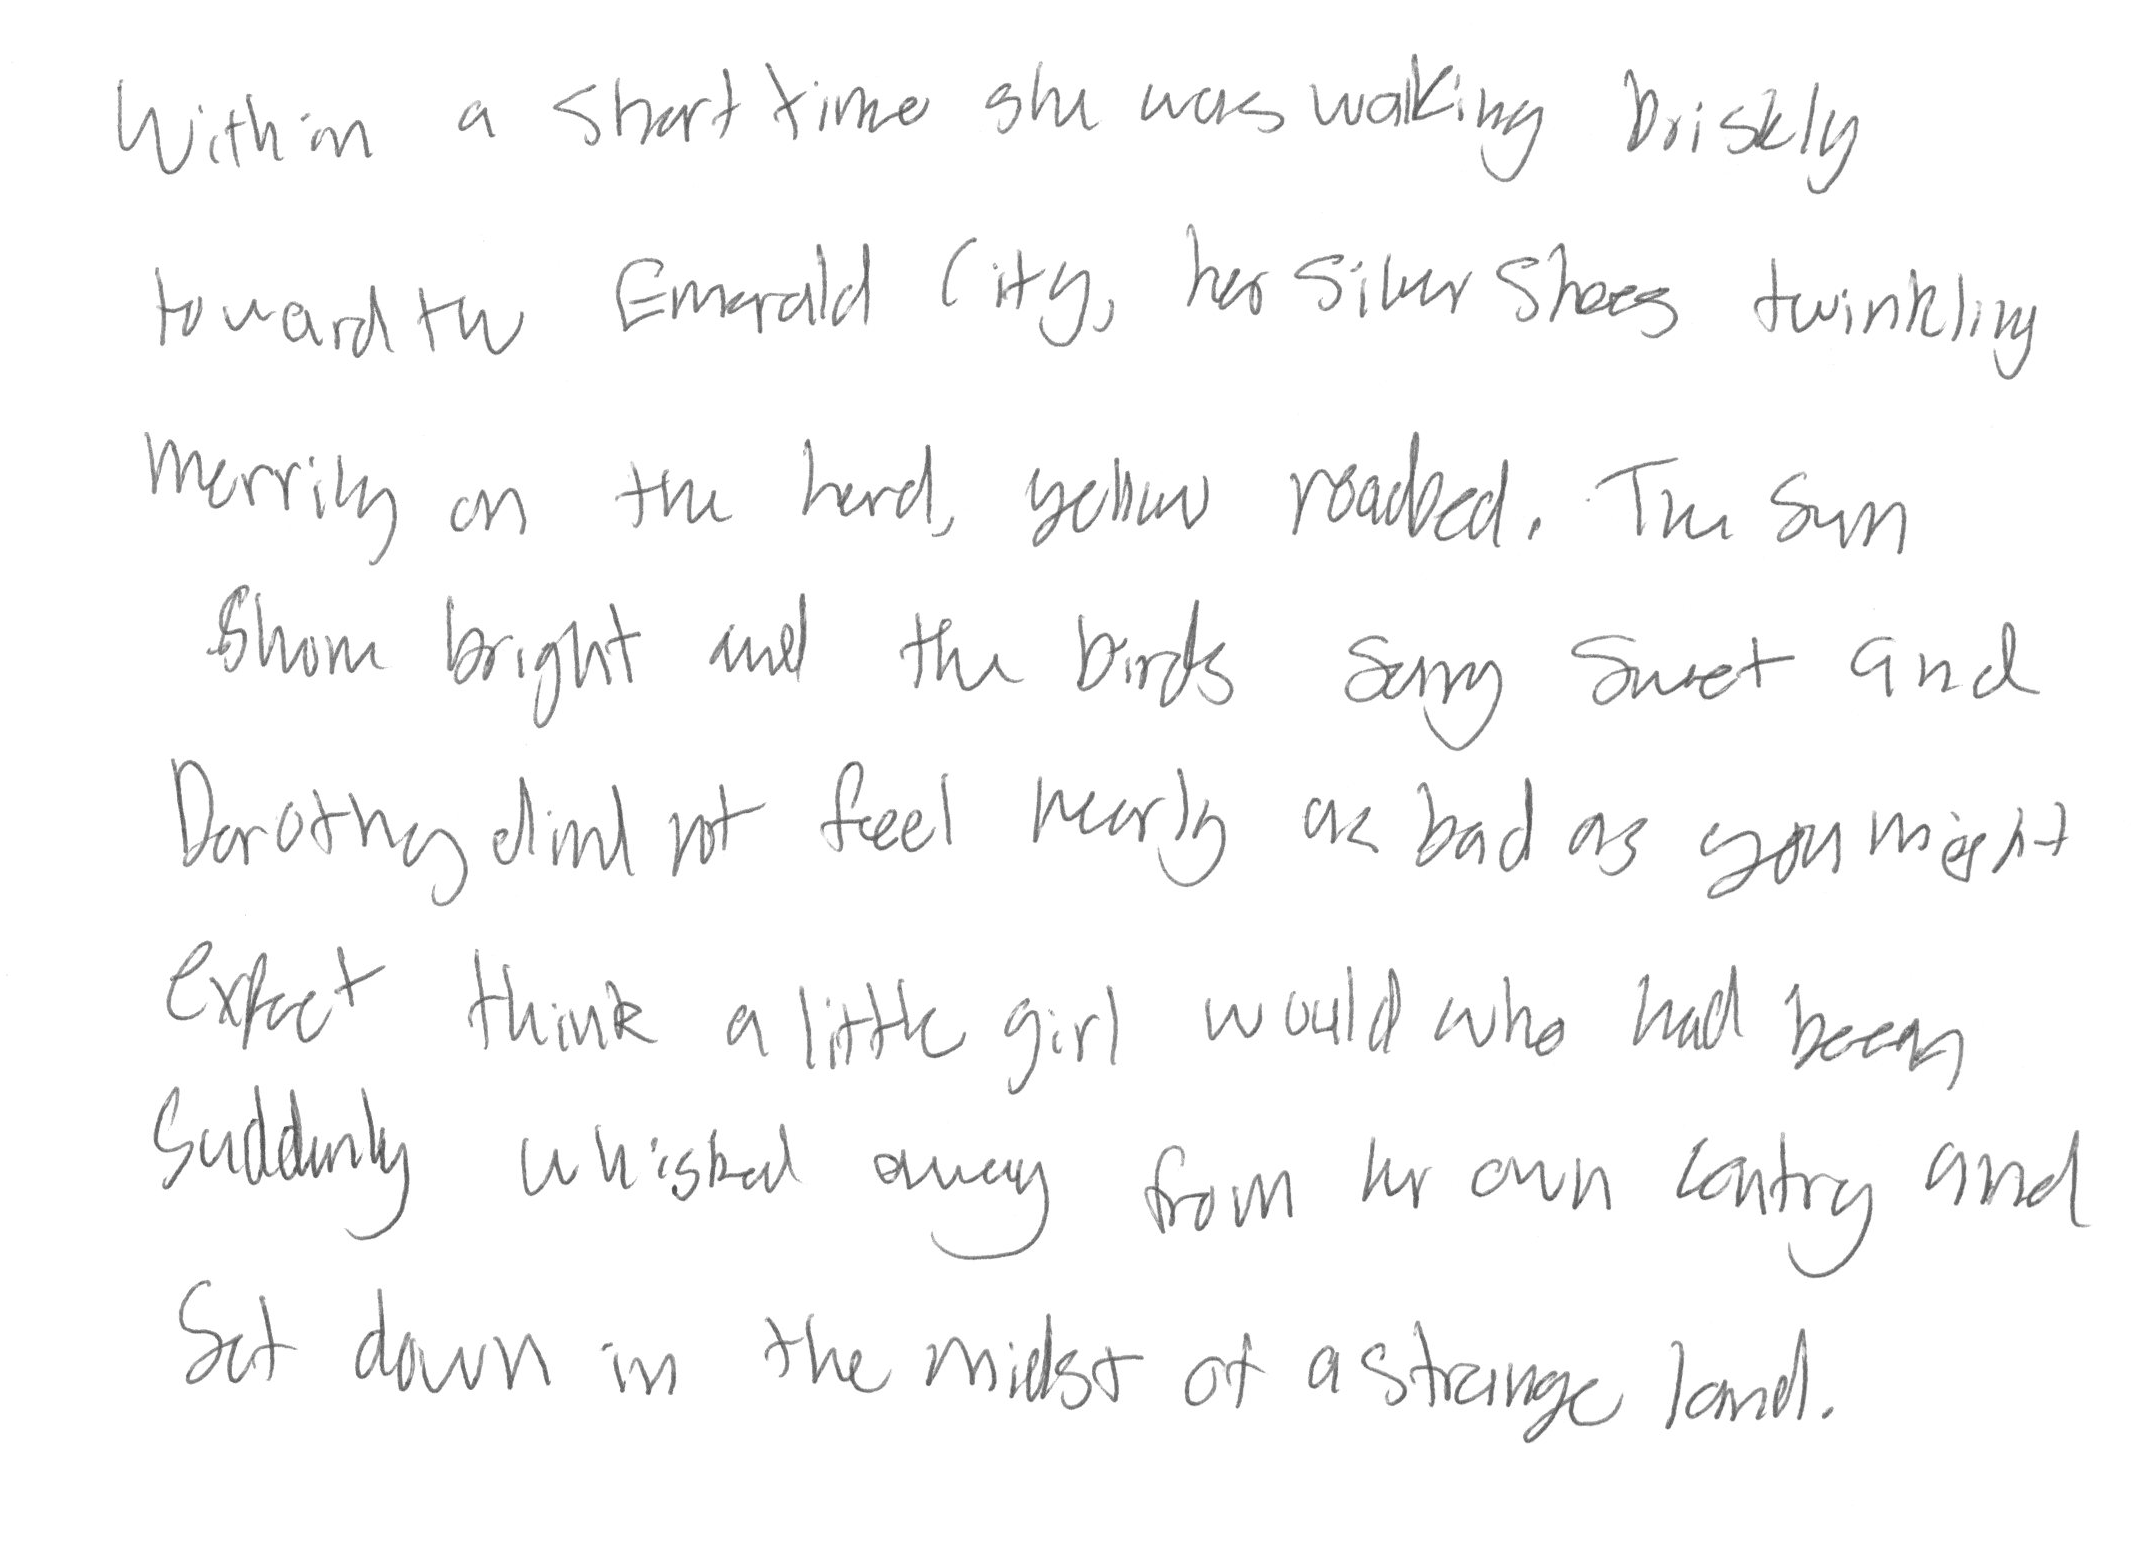 Within a short time she was walking briskly
toward the Emerald City, her Silver Shoes twinkling
merrily on the hard, yellow roadbed. The sun
shone bright and the birds sang sweet and
Dorothy did not feel nearly as bad as you might
expect think a little girl would who had been
suddenly whisked away from her own contry and
set down in the midst of a strange land.